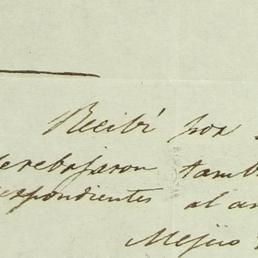 Recibí por
rebajaron tamb
espondientes al a
Mejico